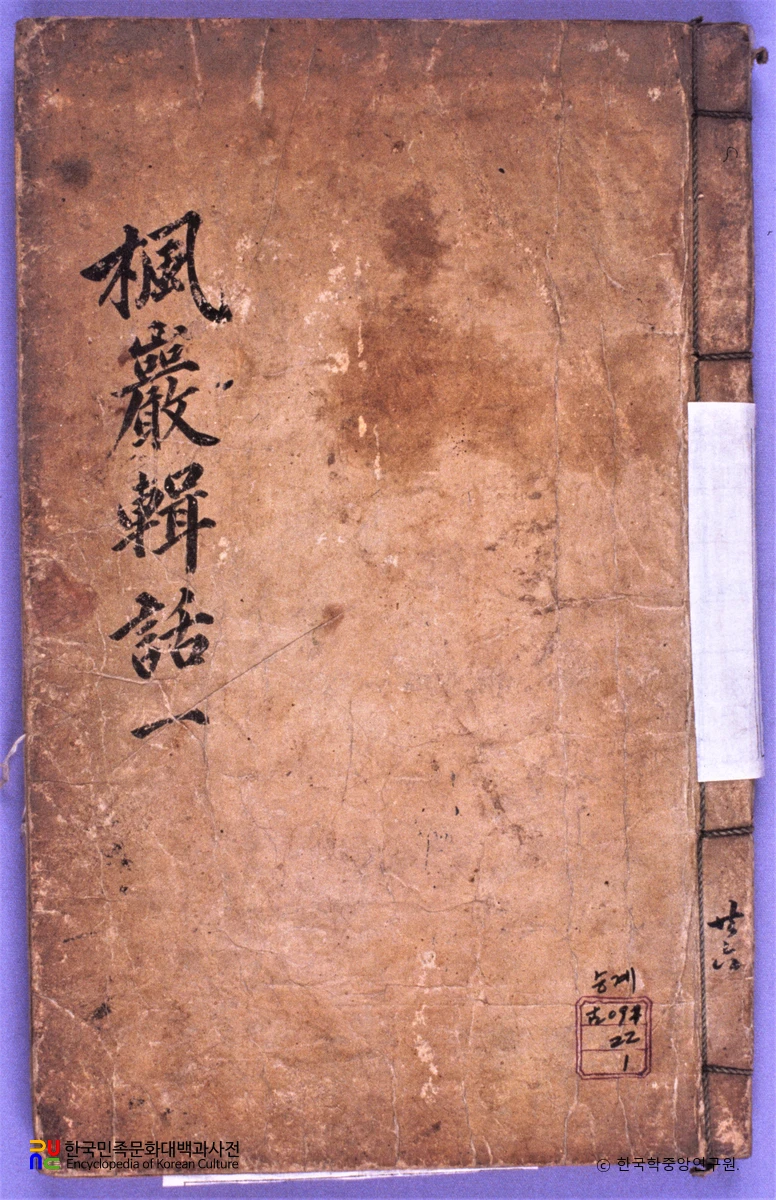 楓巖輯話 一
승계
古091
22
1
한국민족문화대백과사전
Encyclopedia of Korean Culture
© 한국학중앙연구원.